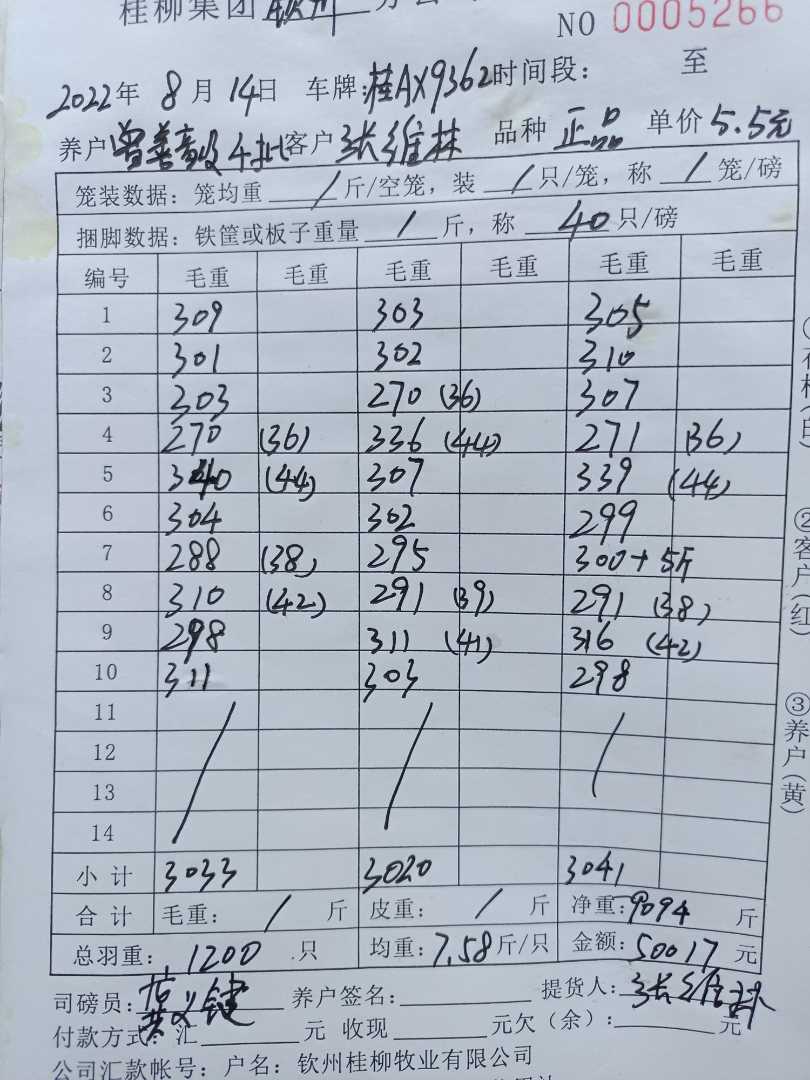 桂柳集团钦州分公
NO 0005266
2022年 8月14日 车牌:桂AX9362时间段: 至
养户曾善 4批客户张维林 品种 正品 单价 5.5元
笼装数据:笼均重 / 斤/空笼,装 / 只/笼,称 / 笼/磅
捆脚数据:铁筐或板子重量 / 斤,称 40 只/磅
编号 毛重 毛重 毛重 毛重 毛重 毛重
1 309 303 305
2 301 302 310
3 303 270 (36) 307
4 270 (36) 336 (44) 271 (36)
5 340 (44) 307 339 (44)
6 304 302 299
7 288 (38) 295 300+5斤
8 310 (42) 291 (39) 291 (38)
9 298 311 (41) 316 (42)
10 311 303 298
11 / / /
12
13
14
小计 3033 3020 3041
合计 毛重: / 斤 皮重: / 斤 净重:9094 斤
总羽重: 1200 只 均重:7.58斤/只 金额:50017元
司磅员: 养户签名: 提货人:张维林
付款方式:汇 元 收现 元欠(余): 元
公司汇款帐号:户名:钦州桂柳牧业有限公司
(白)
②客户(红)
③养户(黄)